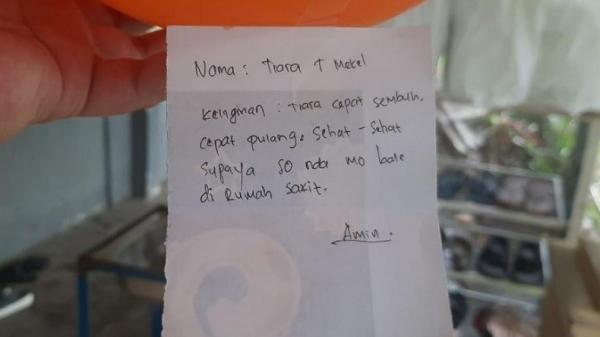 Nama : Tiara T Mekel
keinginan : Tiara cepat sembuh,
cepat pulang. Sehat - Sehat
Supaya so nda mo bale
di Rumah sakit.
Amin.